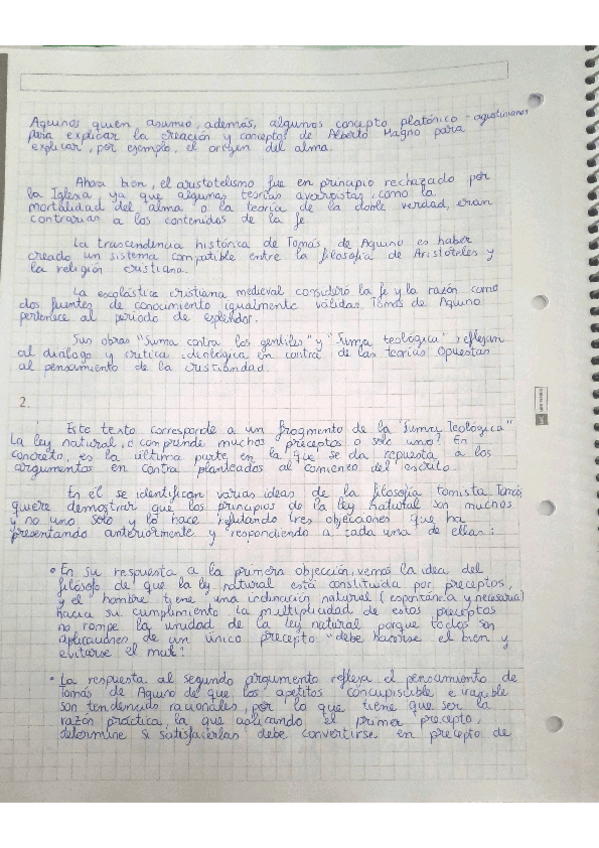 Aquinos quien asumio, además, algunos concepto platónico - agustinianos
para explicar la creación y conceptos de Alberto Magno para
explicar, por ejemplo, el origen del alma.
Ahora bien, el aristotelismo fue en principio rechazado por
la Iglesia, ya que algunas teorías averroistas, como la
mortalidad del alma o la teoría de la doble verdad, eran
contrarias a los contenidos de la fe
La trascendencia histórica de Tomás de Aquino es haber
creado un sistema compatible entre la filosofía de Aristóteles y
la religión cristiana.
La escolástica cristiana medieval consideró la fe y la razón como
dos fuentes de conocimiento igualmente válidas. Tomás de Aquino
pertenece al periodo de esplendor.
Sus obras "Suma contra los gentiles" y "Suma teológica", reflejan
al dialogo y crítica ideológica en contra de las teorías opuestas
al pensamiento de la cristiandad.
2.
Este texto corresponde a un fragmento de la "Suma Teologica"
La ley natural, ¿comprende muchos preceptos o solo uno? En
concreto, es la última parte en la que se da repuesta a los
argumentos en contra planteados al comienzo del escrito.
En él se identifican varias ideas de la filosofía tomista. Tomás
quiere demostrar que los principios de la ley natural son muchos
y no uno solo y lo hace refutando tres objeciones que ha
presentando anteriormente y respondiendo a cada una de ellas:
• En su respuesta a la primera objección, vemos la idea del
filósofo de que la ley natural está constituida por preceptos,
y el hombre tiene una inclinación natural (espontánea y necesaria)
hacia su cumplimiento. La multiplicidad de estos preceptos
no rompe la unidad de la ley natural porque todos son
aplicaciones de un único precepto "debe hacerse el bien y
evitarse el mal".
• La respuesta al segundo argumento refleja el pensamiento de
Tomás de Aquino de que los apetitos concupiscible e irascible
son tendencias racionales, por lo que tiene que ser la
razón práctica, la que aplicando el primer precepto,
determine si satisfacerlas debe convertirse en precepto de